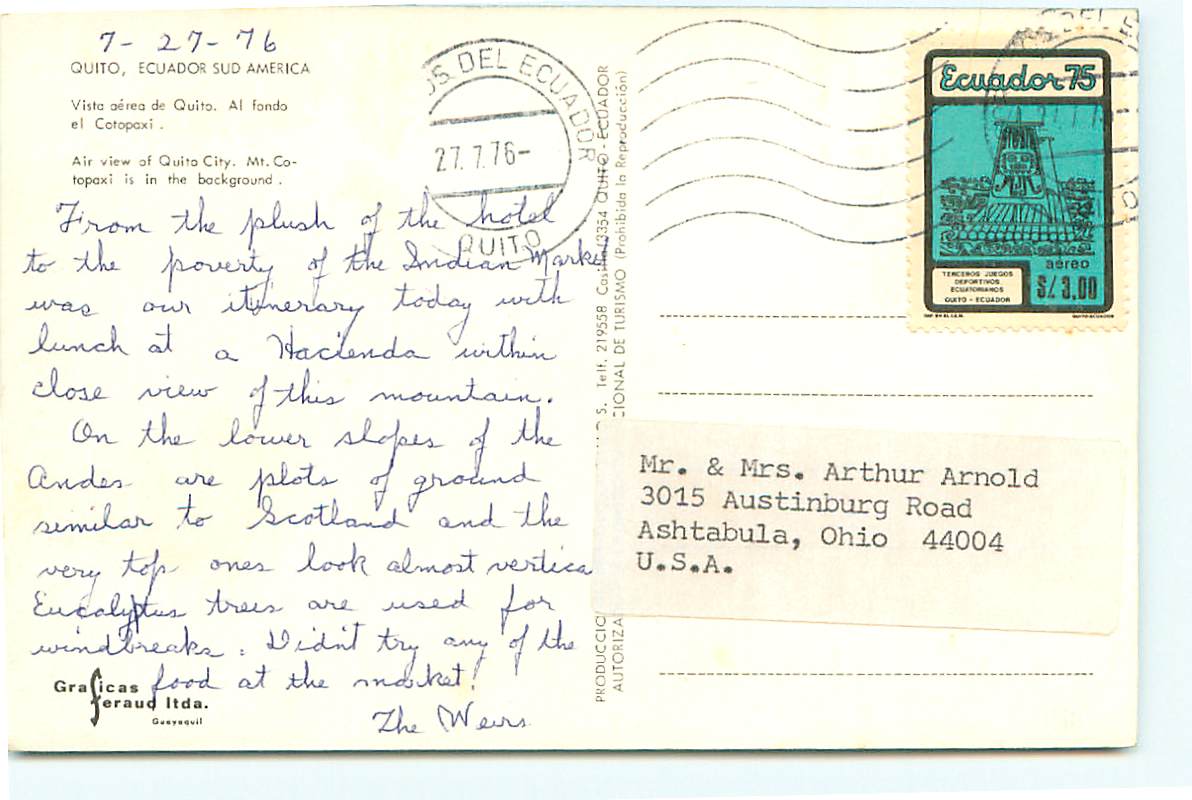 7- 27-76
QUITO, ECUADOR SUD AMERICA
Vista aérea de Quito. Al fondo
el Cotopaxi.
Air view of Quito City. Mt. Co-
topaxi is in the background.
From the plush of the hotel
to the poverty of the Indian Market
was our itinerary today with
lunch at a Hacienda within
close view of this mountain.
On the lower slopes of the
Andes are plots of ground
similar to Scotland and the
very top ones look almost vertica
Eucalyptus trees are used for
windbreaks. Didn't try any of the
food at the market!
The Weirs
Graficas
feraud ltda.
Guayaquil
OS DEL ECUADOR
27.7.76-
QUITO
PRODUCCIO S. Telf. 219558 Casilla 3354 QUITO - ECUADOR
AUTORIZA CIONAL DE TURISMO (Prohibida la Reproducción)
Ecuador 75
aéreo
TERCEROS JUEGOS
DEPORTIVOS
ECUATORIANOS
QUITO - ECUADOR
S/. 3,00
Mr. & Mrs. Arthur Arnold
3015 Austinburg Road
Ashtabula, Ohio 44004
U.S.A.